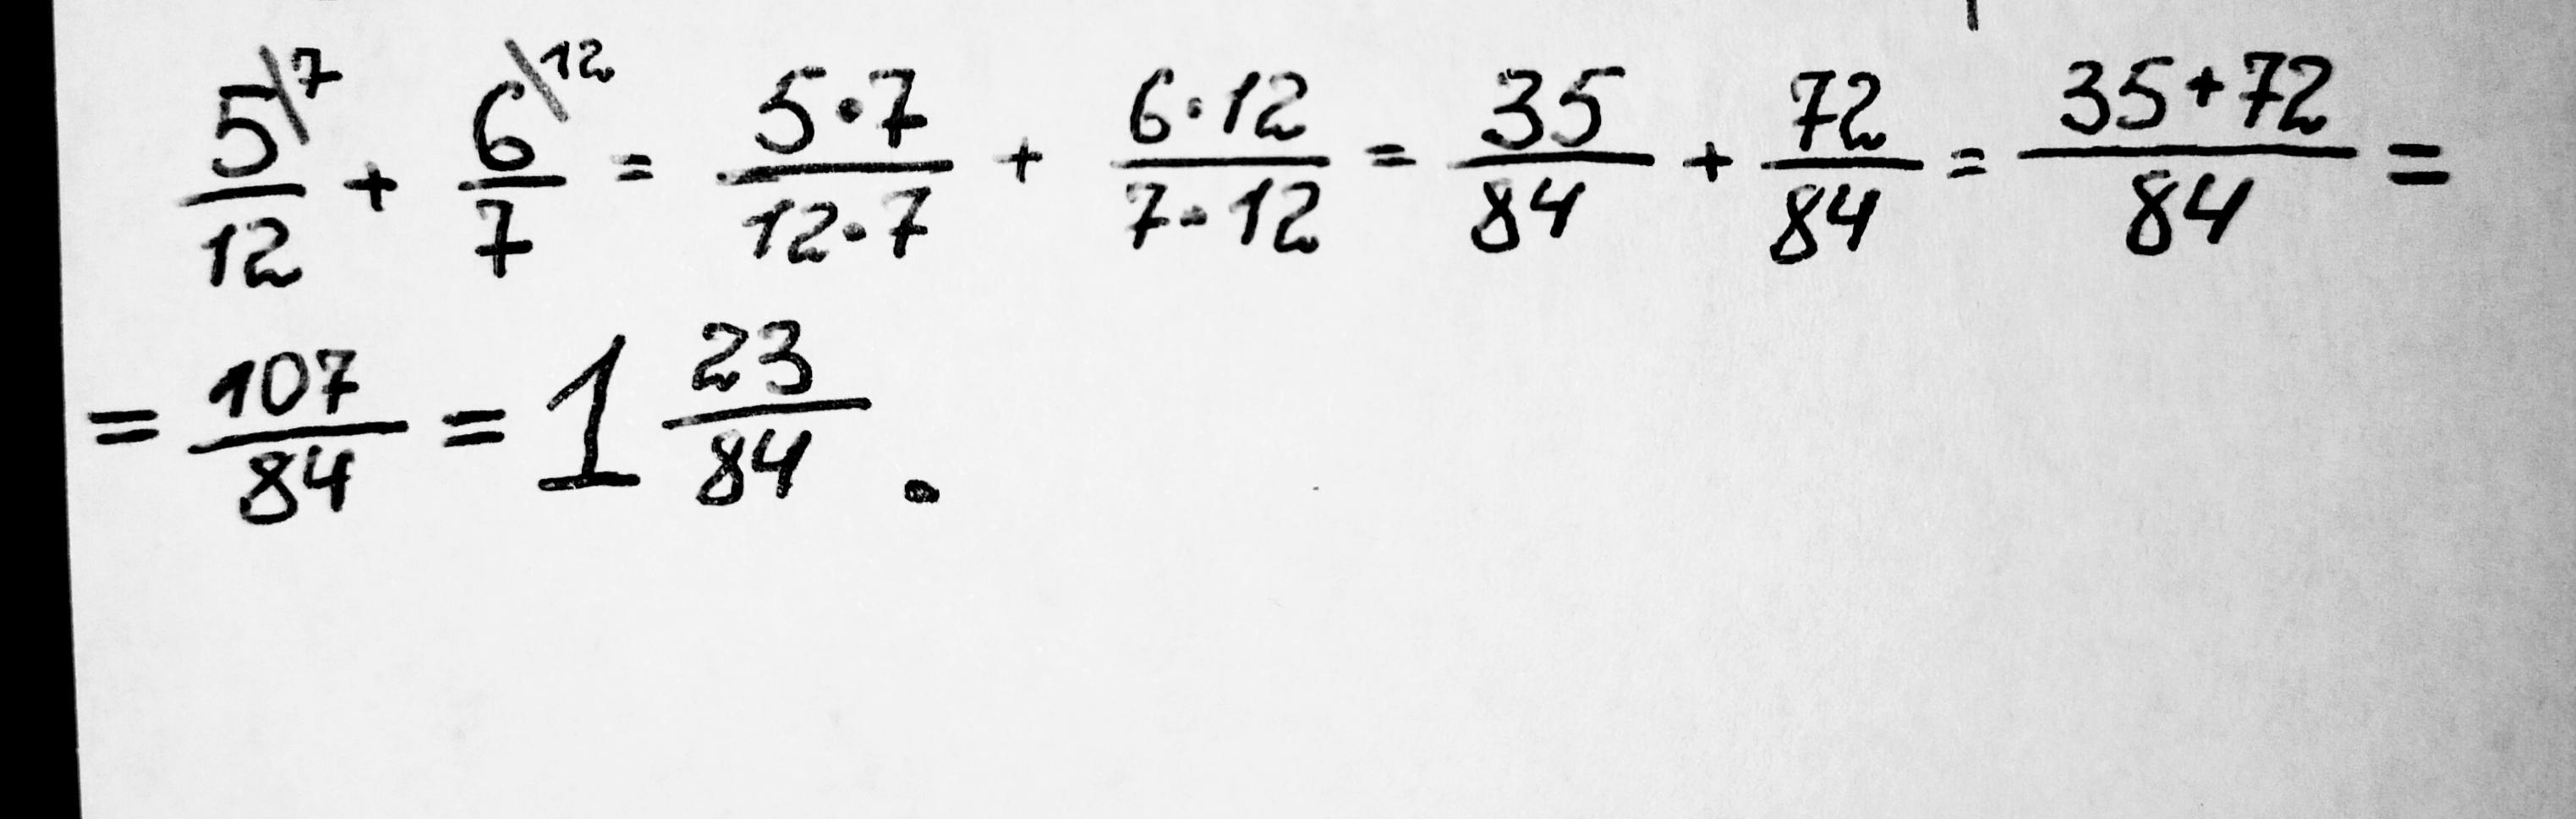 5\7/12 + 6\12/7 = 5·7/12·7 + 6·12/7·12 = 35/84 + 72/84 = 35+72/84 =
= 107/84 = 1 23/84 .